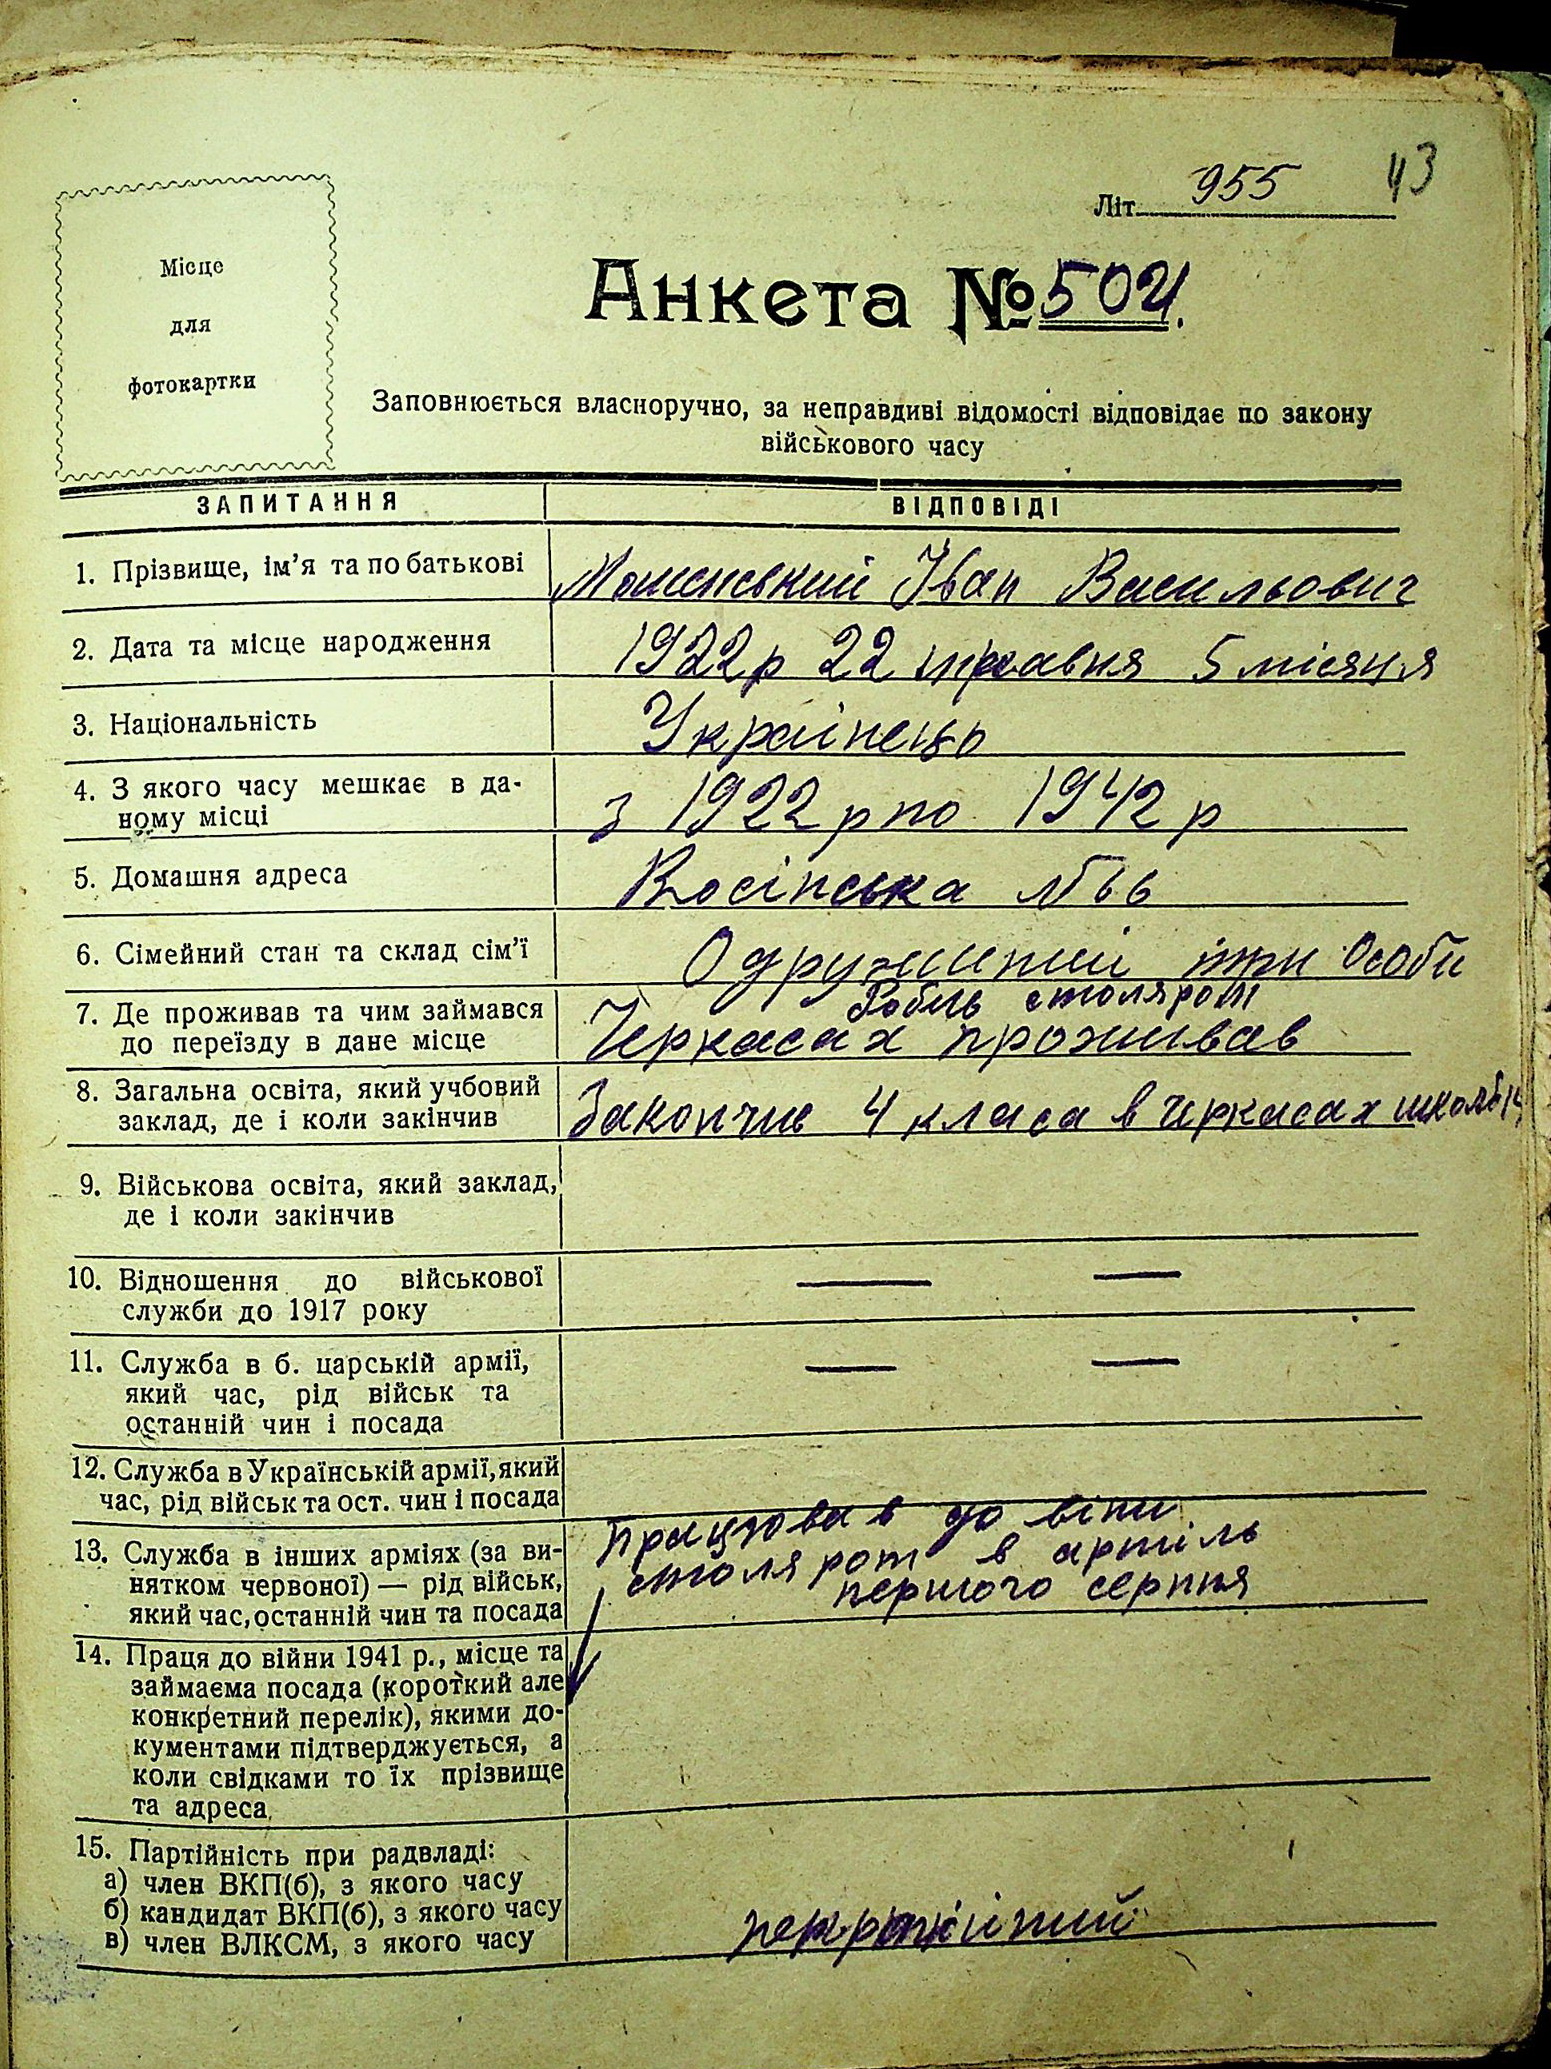 43
Літ. 955
Місце
для
фотокартки
Анкета № 504.
Заповнюється власноручно, за неправдиві відомості відповідає по закону
військового часу
ЗАПИТАННЯ ВІДПОВІДІ
1. Прізвище, ім'я та по батькові Іван Васильович
2. Дата та місце народження 1922 р 22 травня 5 місяця
3. Національність Українець
4. З якого часу мешкає в да-
ному місці з 1922 р по 1942 р
5. Домашня адреса
6. Сімейний стан та склад сім'ї Одружиний три особи
7. Де проживав та чим займався Робив столяром
до переїзду в дане місце Черкасах проживав
8. Загальна освіта, який учбовий
заклад, де і коли закінчив Закончив 4 класа в Черкасах
9. Військова освіта, який заклад,
де і коли закінчив
10. Відношення до військової — —
служби до 1917 року
11. Служба в б. царській армії, — —
який час, рід військ та
останній чин і посада
12. Служба в Українській армії, який
час, рід військ та ост. чин і посада
працював до віни
13. Служба в інших арміях (за ви- столяром в артіль
нятком червоної) — рід військ, першого серпня
який час, останній чин та посада
14. Праця до війни 1941 р., місце та
займаєма посада (короткий але
конкретний перелік), якими до-
кументами підтверджується, а
коли свідками то їх прізвище
та адреса.
15. Партійність при радвладі:
а) член ВКП(б), з якого часу
б) кандидат ВКП(б), з якого часу
в) член ВЛКСМ, з якого часу